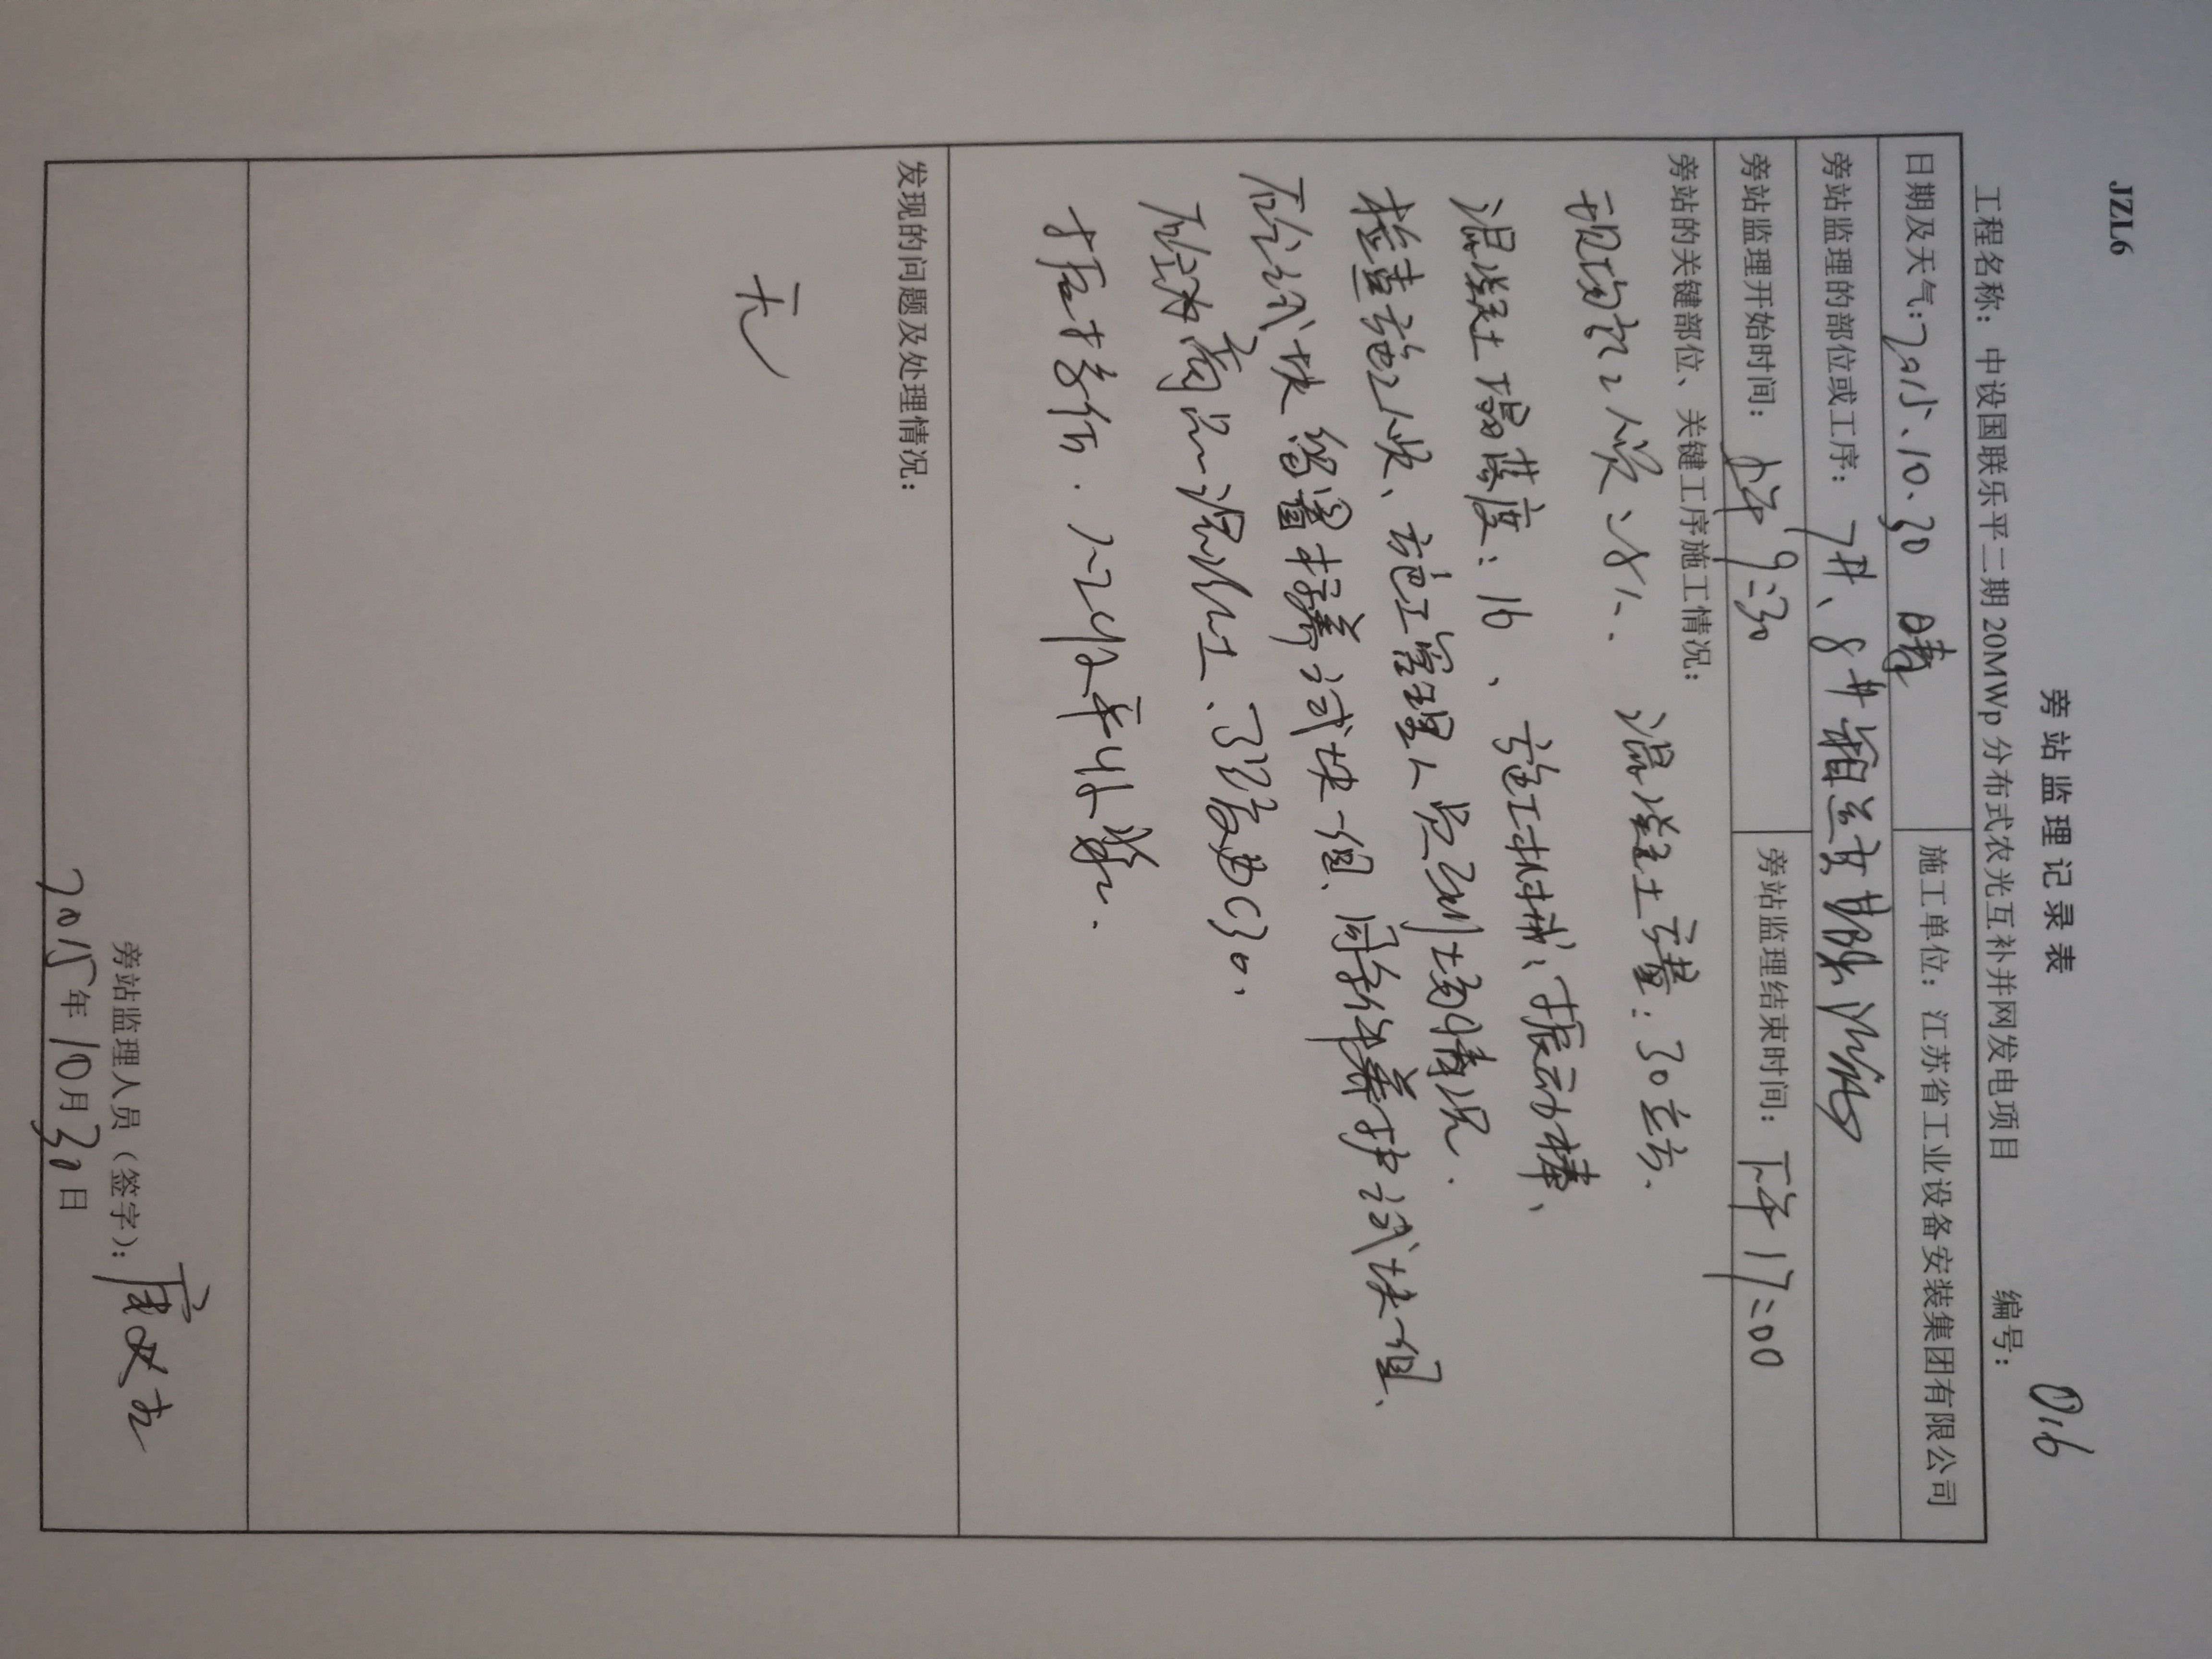 JZL6
旁站监理记录表
编号： 016
工程名称：中设国联乐平二期20MWp分布式农光互补并网发电项目
日期及天气：2015、10、30 晴
施工单位：江苏省工业设备安装集团有限公司
旁站监理的部位或工序：7#、8#箱变基础浇筑
旁站监理开始时间：上午9:30
旁站监理结束时间：下午17:00
旁站的关键部位、关键工序施工情况：
现场施工人员：8人、混凝土方量：30立方、
混凝土塌落度：16、施工机械：振动棒、
检查施工人员、施工管理人员到场情况.
砼试块留置标养试块一组、同条件养护试块一组、
砼为商品混凝土、强度为C30、
发现的问题及处理情况：
无
旁站监理人员（签字）：
2015年10月30日